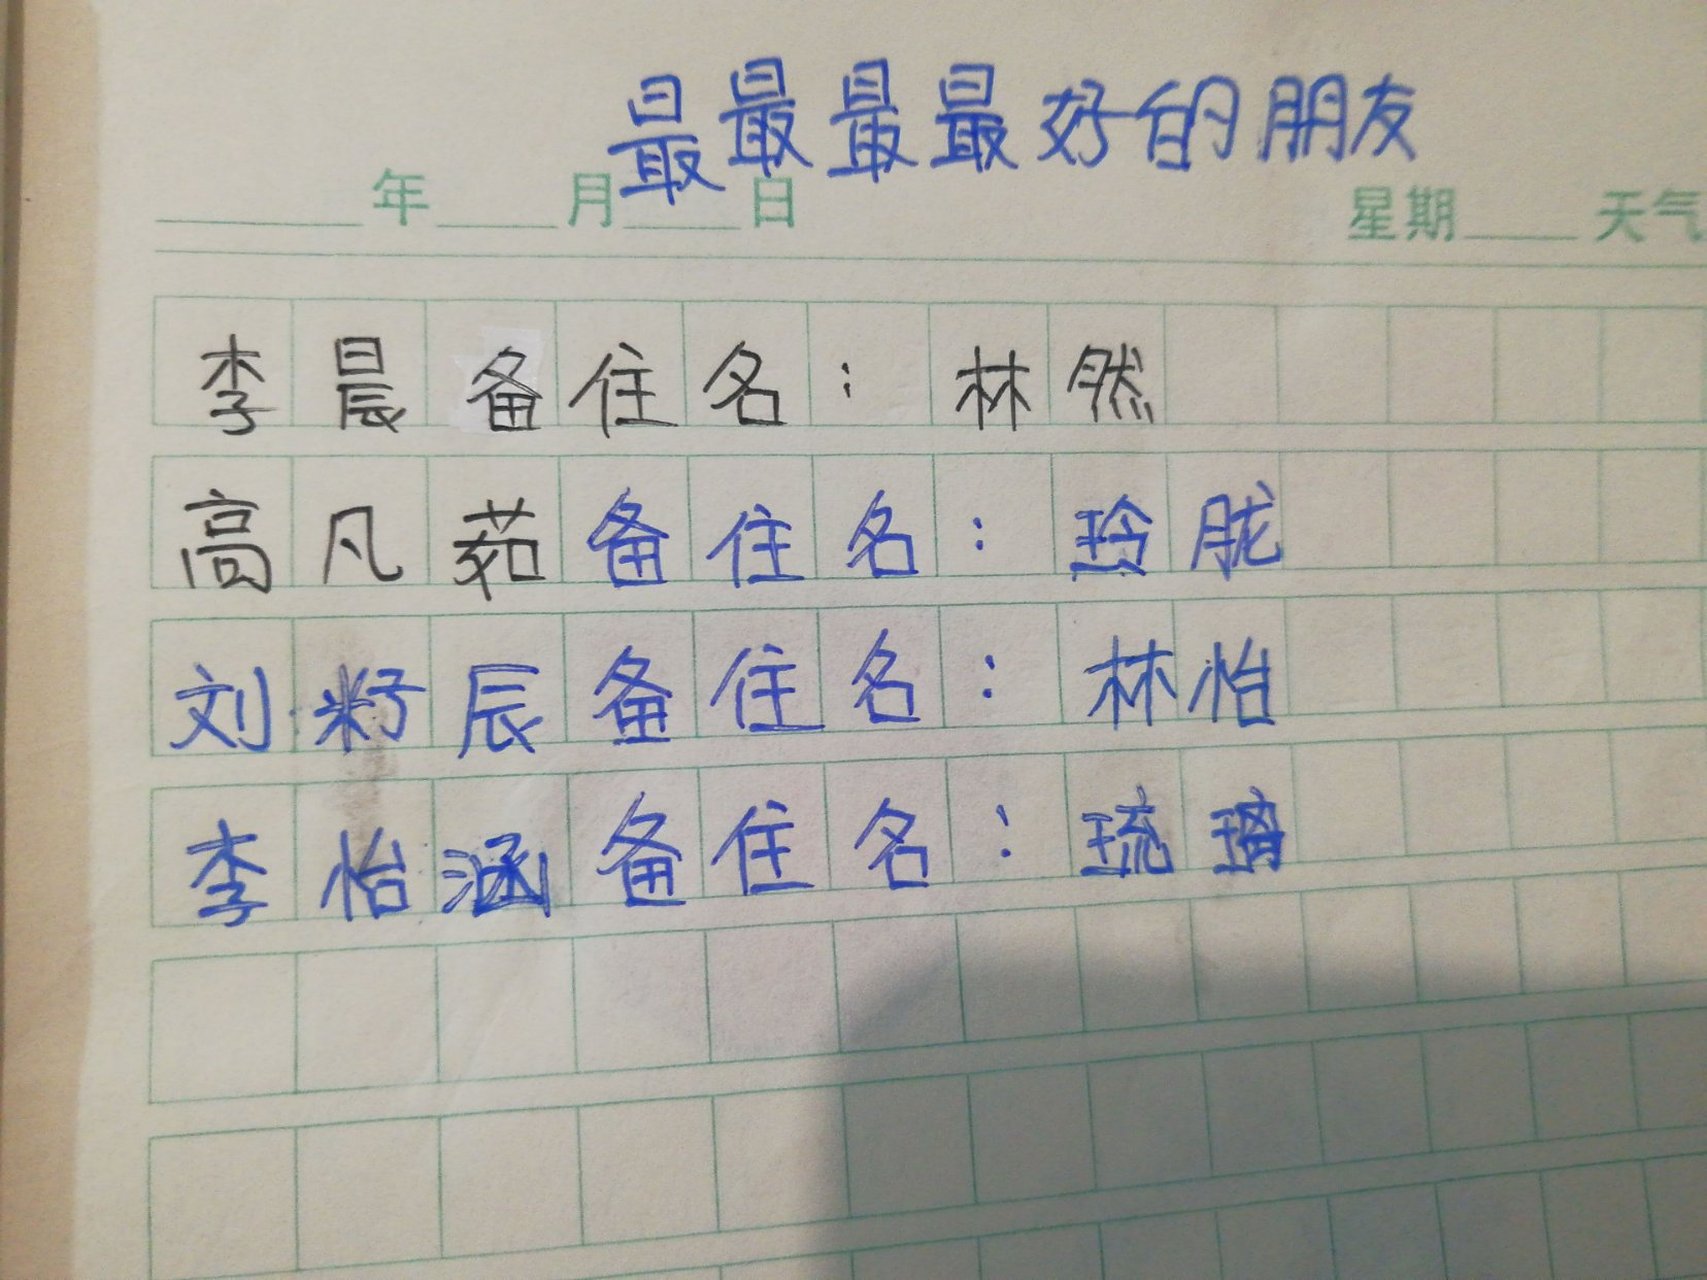 最最最最好的朋友
年 月 日 星期 天气
李晨备住名：林然
高凡茹备住名：玲胧
刘籽辰备住名：林怡
李怡涵备住名：琉璃